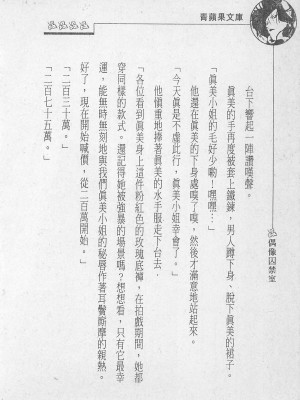 青蘋果文庫
偶像囚禁室
台下響起一陣讚嘆聲。
真美的手再度被套上鐵鍊,男人蹲下身、脫下真美的裙子。
「真美小姐的毛好少嘞!嘿嘿…」
他還在真美的下身處嗅了嗅,然後才滿意地站起來。
「今天真是不虛此行,真美小姐幸會了。」
他慎重地捧著真美的水手服走下台去。
「各位看到真美身上這件粉紅色的玫瑰底褲,在拍戲期間,她都
穿同樣的款式。還記得她被強暴的場景嗎?想想看,只有它最幸
運,能無時無刻地與我們真美小姐的秘唇作著耳鬢廝摩的親熱。
好了,現在開始喊價,從二百萬開始。」
「二百三十萬。」
「二百七十五萬。」